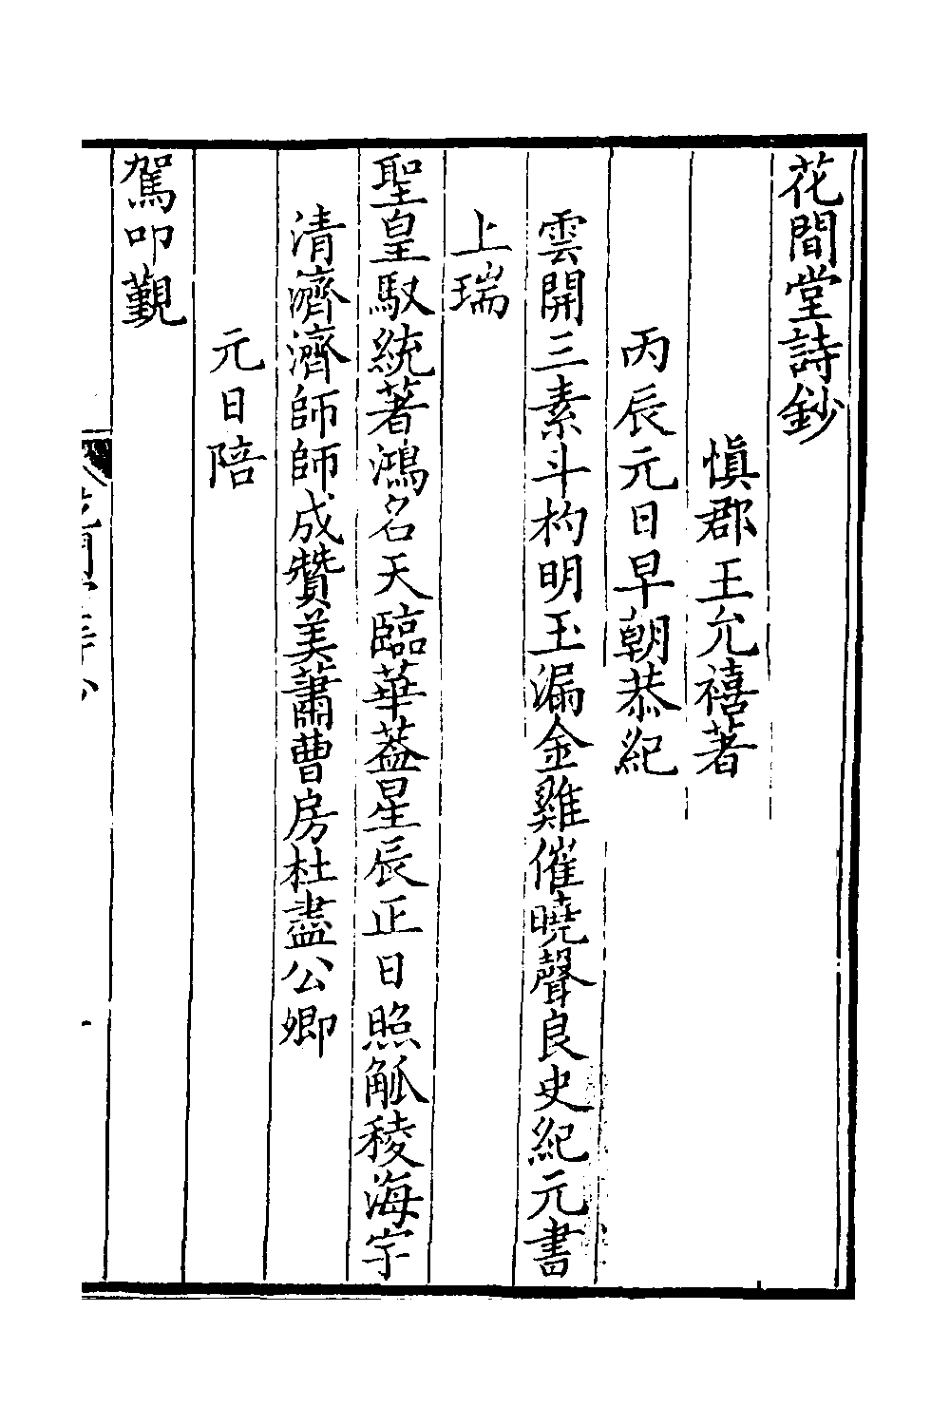 花間堂詩鈔
慎郡王允禧著
丙辰元日早朝恭紀
雲開三素斗杓明玉漏金雞催曉聲良史紀元書
上瑞
聖皇馭統著鴻名天臨華葢星辰正日照觚稜海宇
清濟濟師師成贊美蕭曹房杜盡公卿
元日陪
駕叩覲